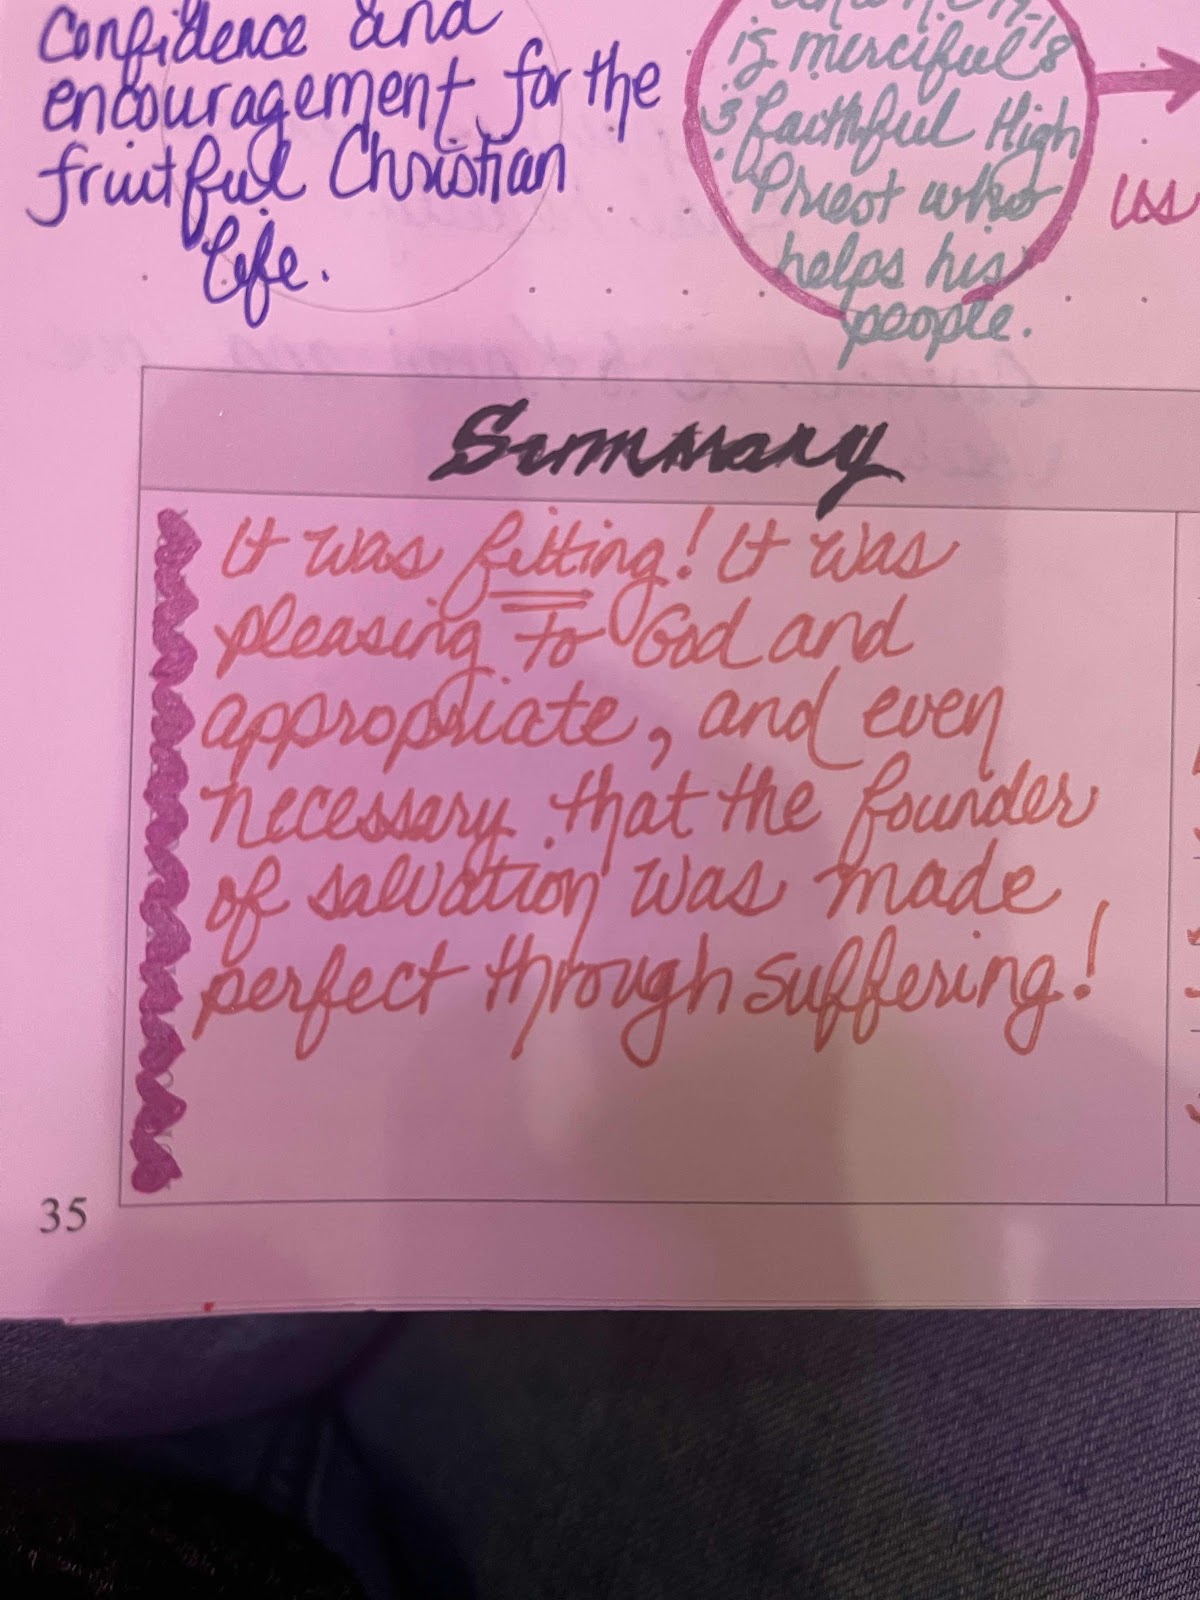 Confidence and
encouragement for the
fruitful Christian
life.
is merciful
faithful High
Priest who
helps his
people.
us
Summary
It was fitting! It was
pleasing to God and
appropriate, and even
necessary that the founder
of salvation was made
perfect through suffering!
35